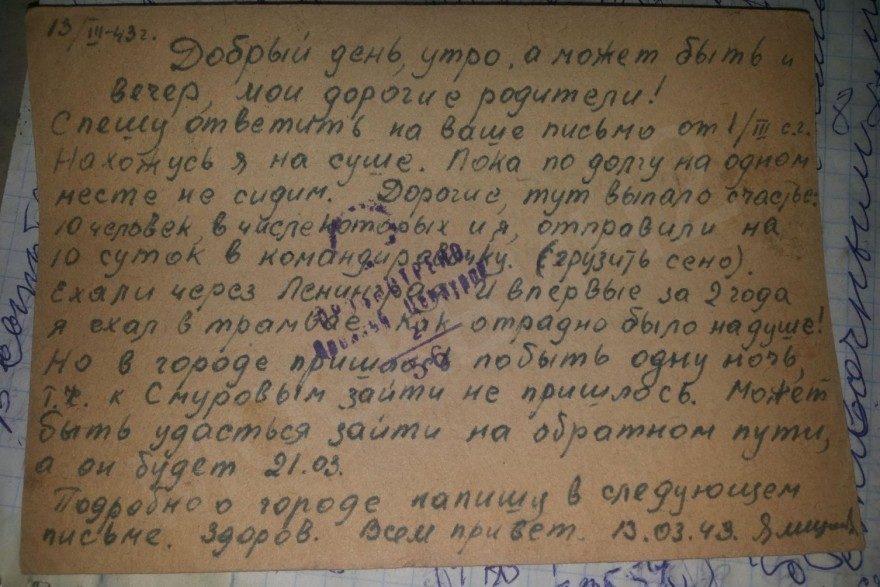 13/III-43г.
Добрый день, утро, а может быть и
вечер, мои дорогие родители!
Спешу ответить на ваше письмо от 1/III с.г.
Нахожусь я на суше. Пока по долгу на одном
месте не сидим. Дорогие, тут выпало счастье:
10 человек, в числе которых и я, отправили на
10 суток в командировочку. (грузить сено).
Ехали через Ленинград и впервые за 2 года
я ехал в трамвае. Как отрадно было на душе!
Но в городе пришлось побыть одну ночь,
т.к. к Смуровым зайти не пришлось. Может
быть удасться зайти на обратном пути,
а он будет 21.03.
Подробно о городе напишу в следующем
письме. Здоров. Всем привет. 13.03.43.
Просмотрено
Военной Цензурой